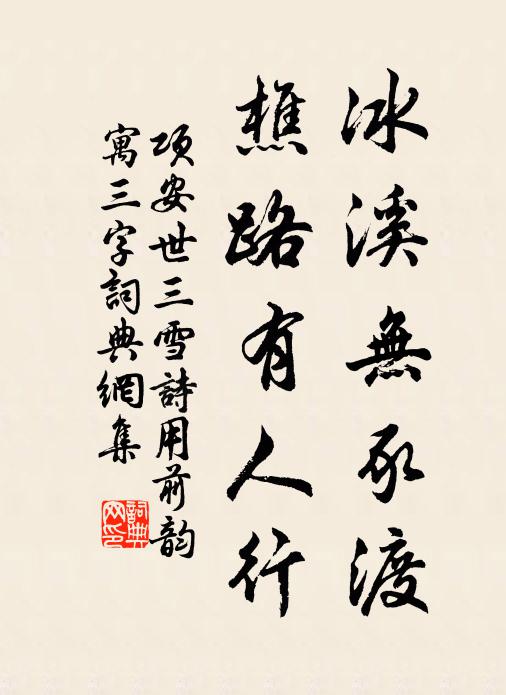 冰溪無豕渡
樵路有人行
項安世三雪詩用前韵
寓三字詞典網集
詞典
网印